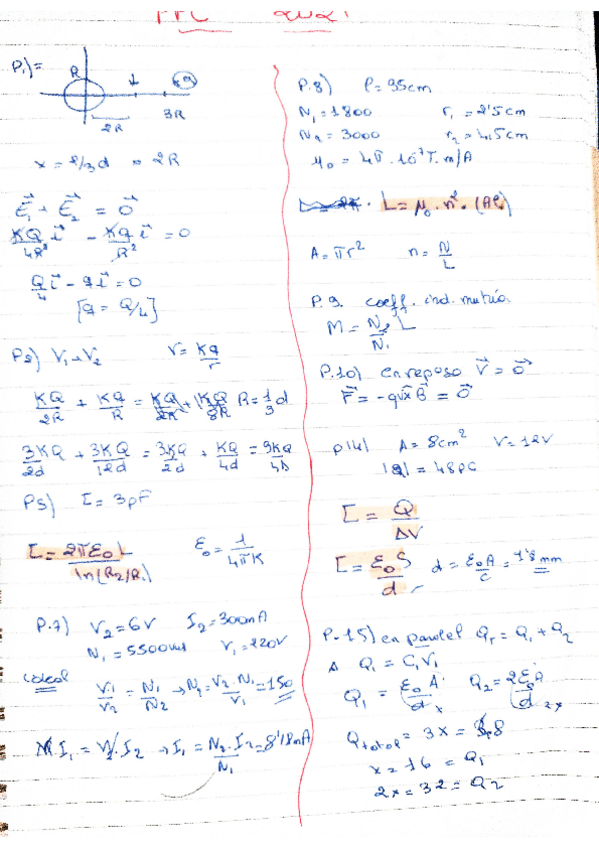 PPC 2021
P1)=
R
2R
3R
x = 2/3 d => 2R
E⃗₁ + E⃗₂ = 0⃗
KQ/4R² i⃗ - Kq/R² i⃗ = 0
Q/4 i⃗ - q i⃗ = 0
[q = Q/4]
P2) V₁+V₂ V = KQ/r
KQ/2R + KQ/R = R = 1/3 d
3KQ/2d + 3KQ/12d = 3KQ/2d + KQ/4d =
P5) C = 3pF
C = 2πε₀L / ln(R₂/R₁) ε₀ = 1/4πK
P.7) V₂ = 6V I₂ = 300mA
N₁ = 5500 V₁ = 220V
ideal
V₁/V₂ = N₁/N₂ → N₂ = V₂·N₁/V₁ = 150
I₁ = V₂·I₂ → I₁ = N₂·I₂/N₁ = 8'18mA
P.8) l = 95cm
N₁ = 1800 r₁ = 2'5cm
N₂ = 3000 r₂ = 4,5cm
μ₀ = 4π·10⁻⁷ T·m/A
L = μ₀·n²·(Al)
A = πr² n = N/L
P.9. coeff. ind. mutua
M = N₂/N₁ L
P.10) en reposo V⃗ = 0⃗
F⃗ = -qv⃗xB⃗ = 0⃗
P14) A = 8cm² V = 12V
|Q| = 48pC
C = Q/ΔV
C = ε₀S/d d = ε₀A/C = 1'8 mm
P.15) en paralel QT = Q₁ + Q₂
Q₁ = C₁V₁
Q₁ = ε₀A/d x Q₂ = 2ε₀A/d 2x
Qtotal = 3x =
x = 16 = Q₁
2x = 32 = Q₂